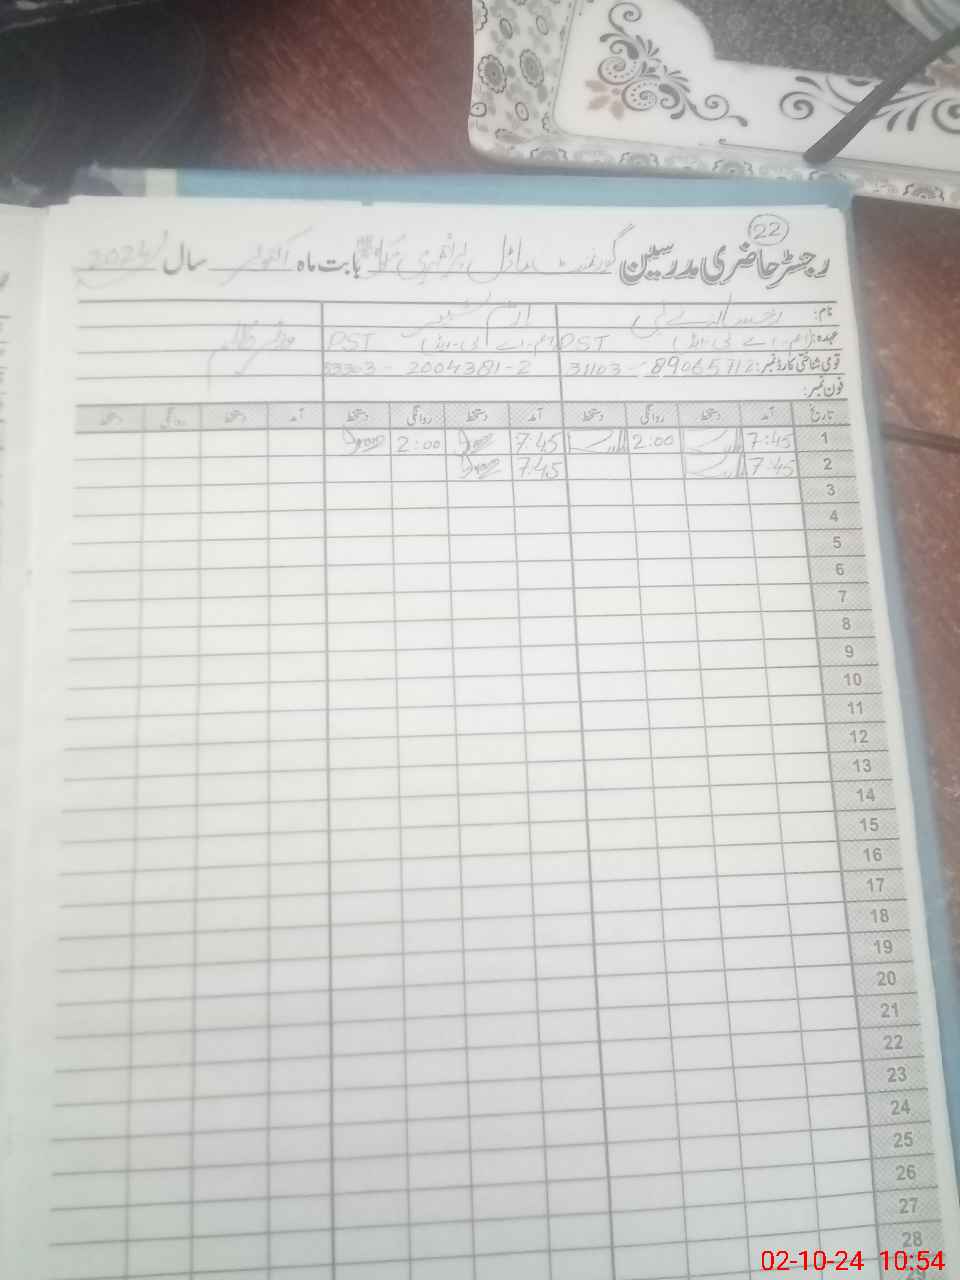 22
رجسٹر حاضری مدرسین گورنمنٹ ماڈل پرائمری بابت ماہ اکتوبر سال 2024
نام:
عہدہ: (ایم-اے بی-ایڈ) PST (ایم-اے بی-ایڈ) PST
قومی شناختی کارڈ نمبر: 31103-8906571 2004381-2
فون نمبر:
تاریخ آمد دستخط روانگی دستخط آمد دستخط روانگی دستخط آمد دستخط روانگی دستخط
1 7:45 2:00 7:45 2:00
2 7:45 7:45
3
4
5
6
7
8
9
10
11
12
13
14
15
16
17
18
19
20
21
22
23
24
25
26
27
28
29
02-10-24 10:54